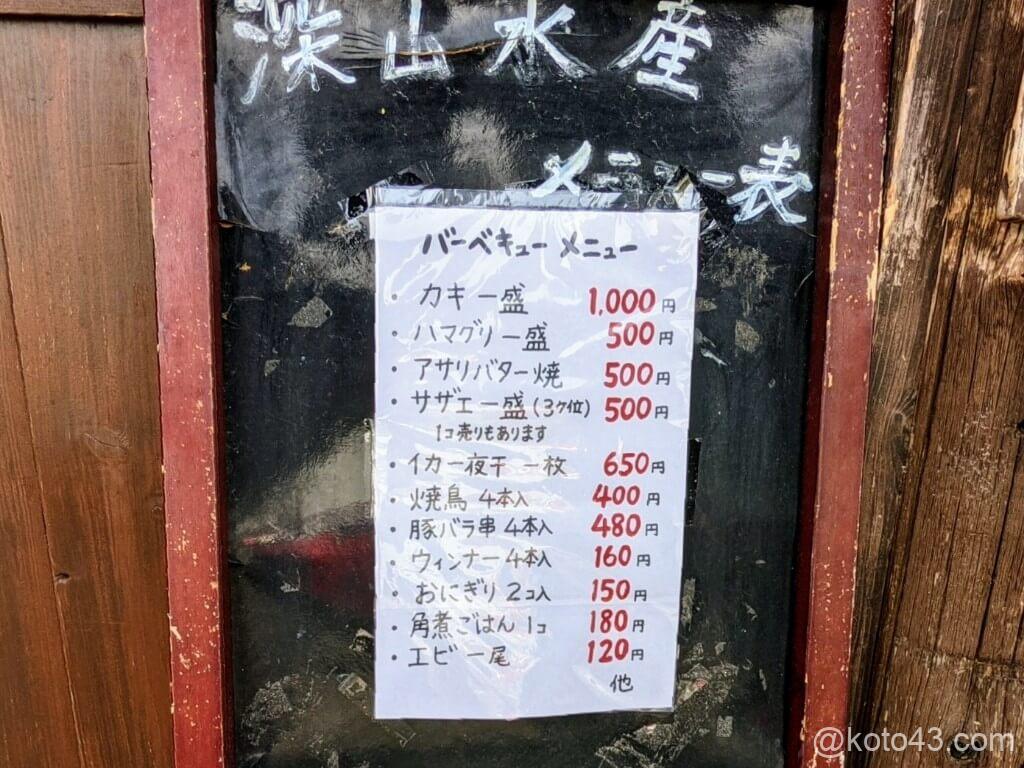 深山水産
メニュー表
バーベキュー メニュー
・カキ一盛 1,000円
・ハマグリ一盛 500円
・アサリバター焼 500円
・サザエ一盛(3ケ位) 500円
1コ売りもあります
・イカ一夜干 一枚 650円
・焼鳥 4本入 400円
・豚バラ串 4本入 480円
・ウィンナー4本入 160円
・おにぎり 2コ入 150円
・角煮ごはん 1コ 180円
・エビ一尾 120円
他
@koto43.com